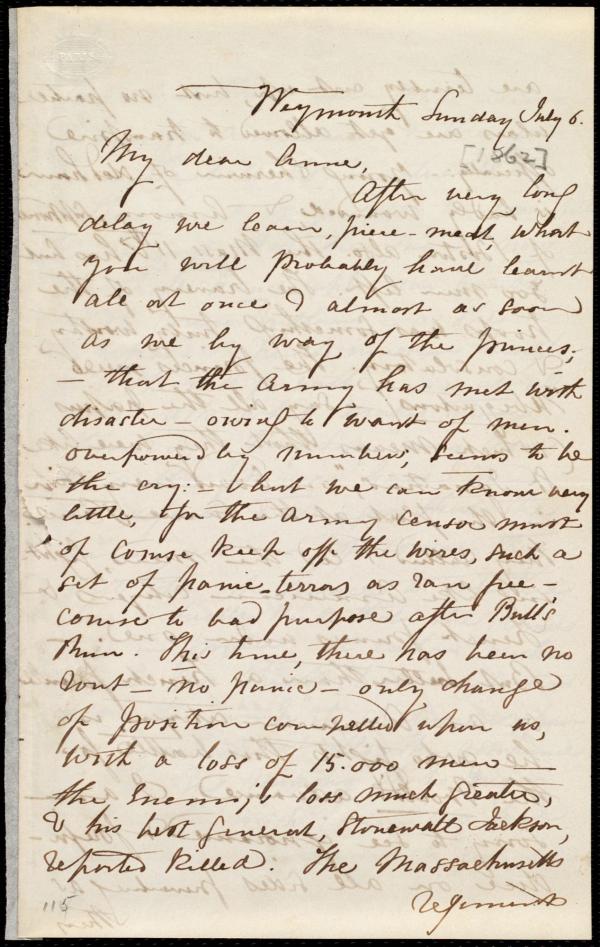 Weymouth Sunday July 6.
[1862]
My dear Anne,
After very long
delay we learn, piece-meal, what
you will probably have learnt
all at once & almost as soon
as we by way of the princes;
- that the Army has met with
disaster - owing to want of men.
overpowered by numbers, seems to be
the cry: - but we can know very
little, for the Army censor must
of course keep off the wires, such a
set of panic-terrors as ran free-
course to bad purpose after Bull's
Run. This time, there has been no
rout - no panic - only change
of position compelled upon us,
with a loss of 15.000 men -
the Enemy's loss much greater,
& his best General, Stonewall Jackson,
reported killed. The Massachusetts
regiments
115